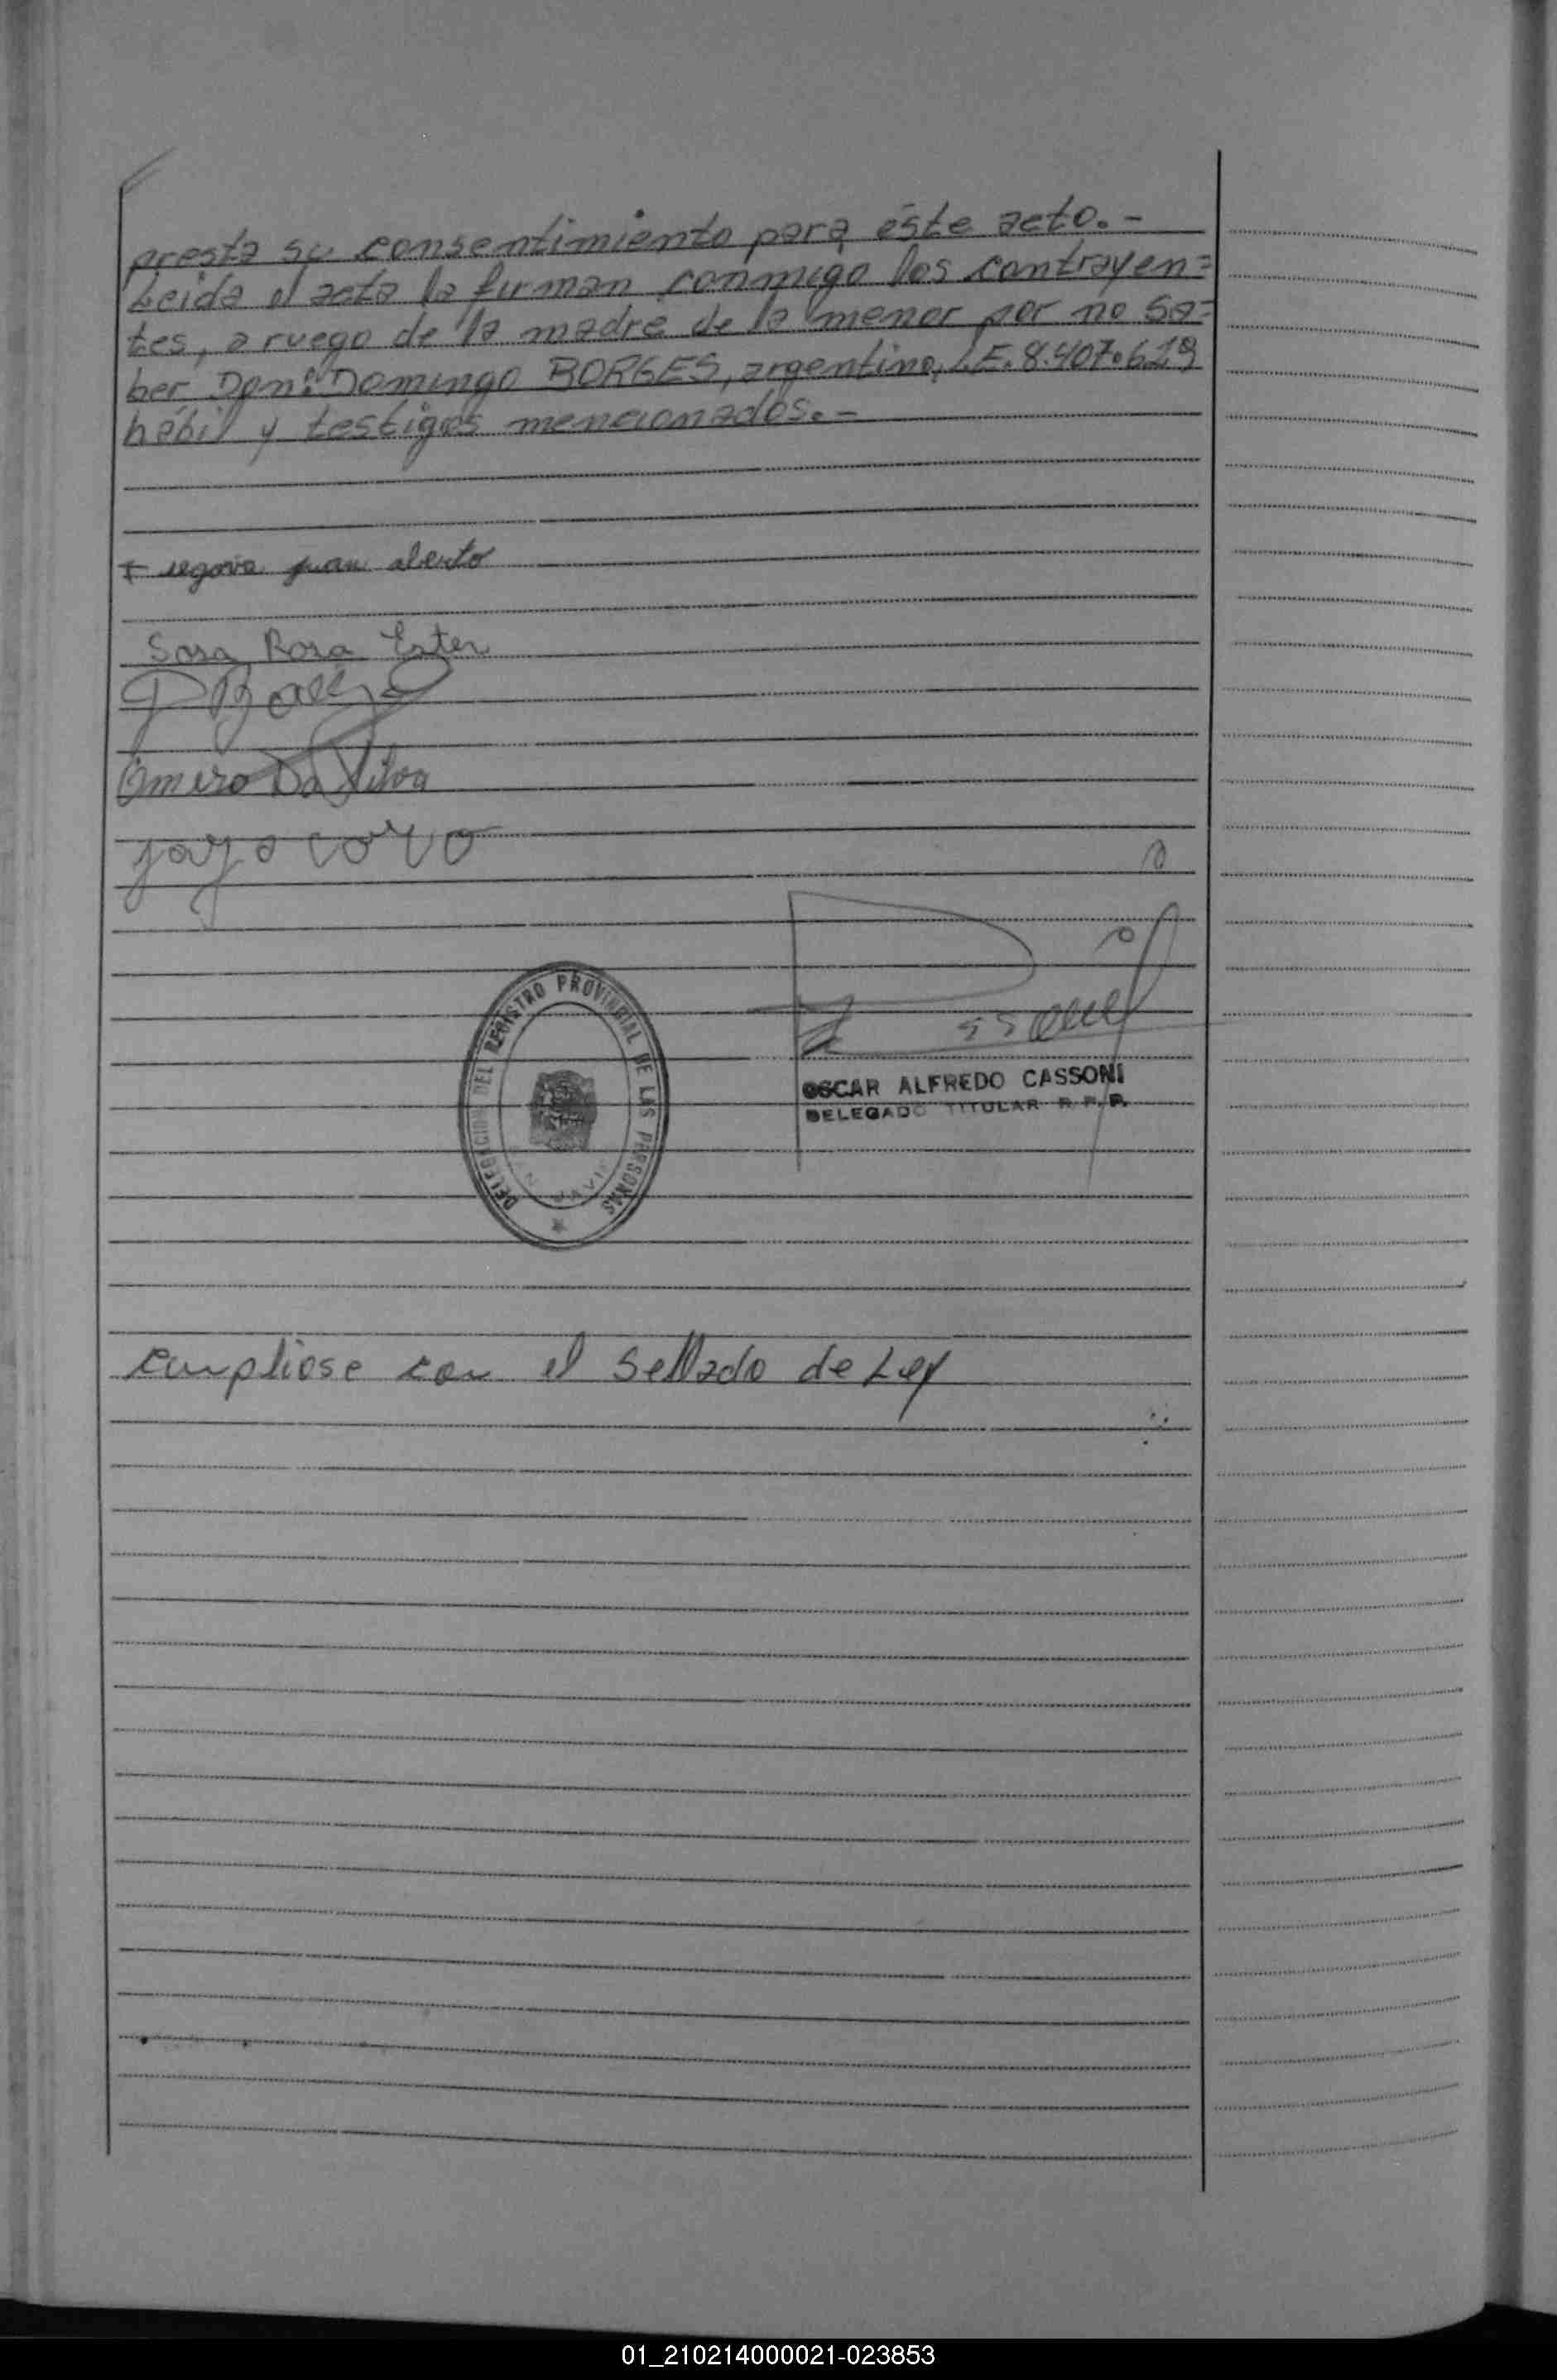 presta su consentimiento para éste acto.-
Leida el acta la firman conmigo los contrayen=
tes, a ruego de la madre de la menor por no sa=
ber Don: Domingo BORGES, argentino, L.E. 8.407.629
hábil y testigos mencionados.-
+ segovia juan alberto
Sosa Rosa Ester
Omero Da Silva
DELEGACION DEL REGISTRO PROVINCIAL DE LAS PERSONAS
OSCAR ALFREDO CASSONI
DELEGADO TITULAR R. P. P.
cumpliose con el sellado de Ley
01_210214000021-023853